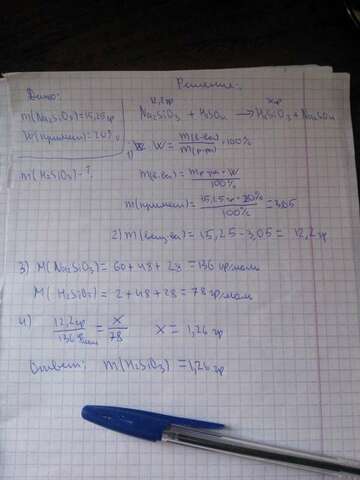 Решение:
Дано:
m(Na2SiO3)=15,25 гр
W(примеси)=20%
m(H2SiO3)-?
12,2 гр X гр
Na2SiO3 + H2SO4 → H2SiO3 + Na2SO4
1) W = m(в-ва)/m(р-ра) · 100%
m(в-ва) = mр-ра · W / 100%
m(примеси) = 15,25 гр · 20% / 100% = 3,05
2) m(вещ-ва) = 15,25 - 3,05 = 12,2 гр
3) M(Na2SiO3) = 60 + 48 + 28 = 136 гр/моль
M(H2SiO3) = 2 + 48 + 28 = 78 гр/моль
4) 12,2 гр / 136 гр/моль = X / 78 X = 1,26 гр
Ответ: m(H2SiO3) = 1,26 гр